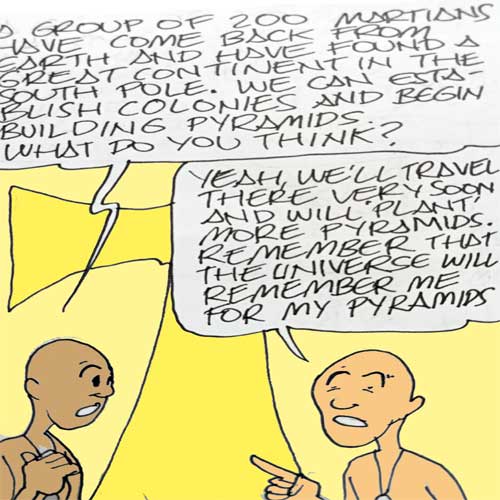 A GROUP OF 200 MARTIANS
HAVE COME BACK FROM
EARTH AND HAVE FOUND A
GREAT CONTINENT IN THE
SOUTH POLE. WE CAN ESTA-
BLISH COLONIES AND BEGIN
BUILDING PYRAMIDS.
WHAT DO YOU THINK?
YEAH, WE'LL TRAVEL
THERE VERY SOON
AND WILL 'PLANT'
MORE PYRAMIDS.
REMEMBER THAT
THE UNIVERSE WILL
REMEMBER ME
FOR MY PYRAMIDS